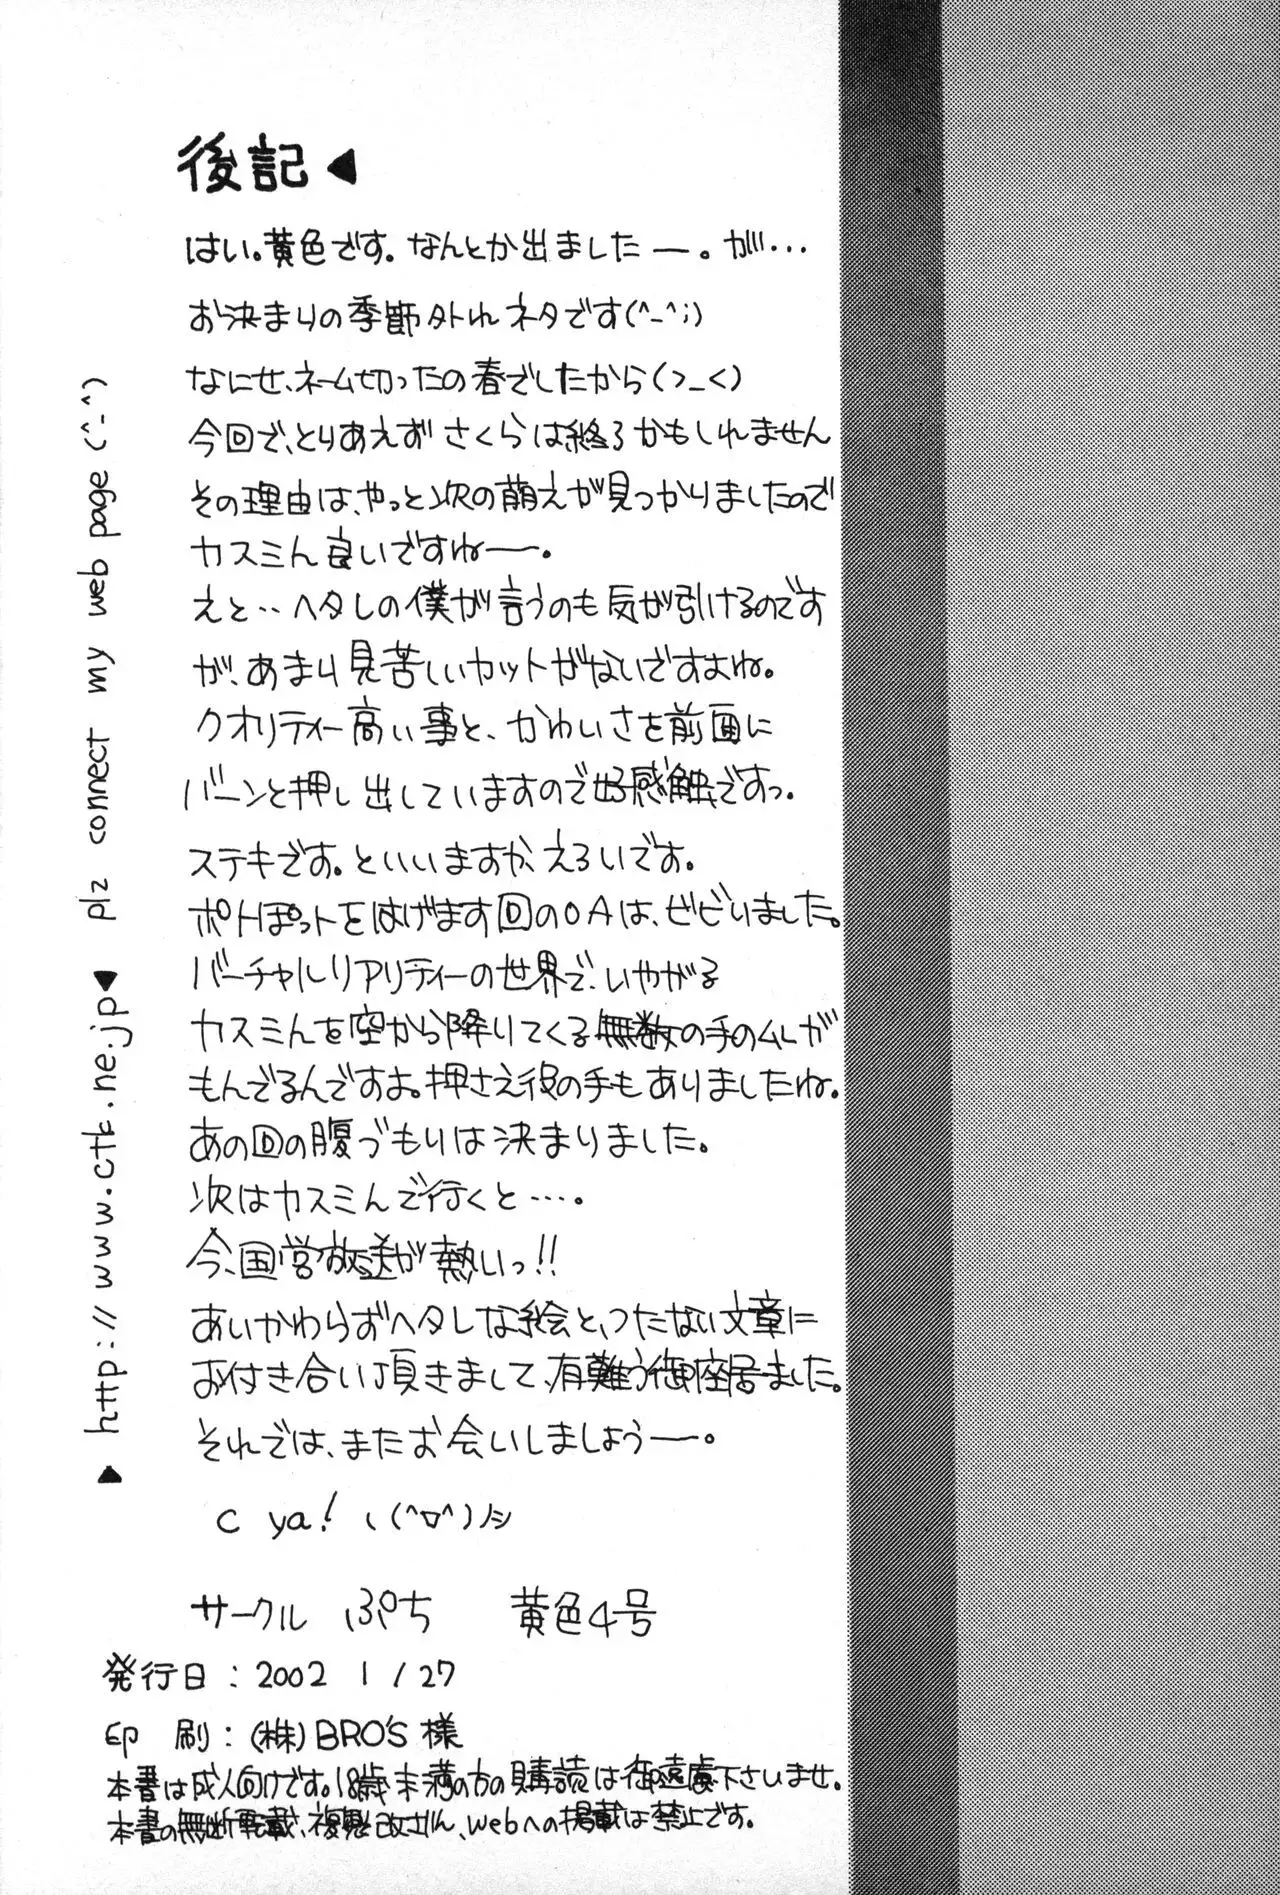 後記◀
はい。黄色です。なんとか出ましたー。が…
お決まりの季節外れネタです(^_^;)
なにせ、ネーム切ったの春でしたから(>_<)
今回で、とりあえずさくらは終るかもしれません
その理由は、やっと次の萌えが見つかりましたので
カスミん良いですねー。
えと‥ヘタレの僕が言うのも気が引けるのです
が、あまり見苦しいカットがないですよね。
クオリティー高い事と、かわいさを前面に
バーンと押し出していますので好感触ですっ。
ステキです。といいますか、えろいです。
ポトぽットをはげます回のOAは、ビビりました。
バーチャルリアリティーの世界で、いやがる
カスミんを空から降りてくる無数の手のムレが
もんでるんですよ。押さえ役の手もありましたね。
あの回の腹づもりは決まりました。
次はカスミんで行くと…。
今、国営放送が熱いっ!!
あいかわらずヘタレな絵と、つたない文章に
お付き合い頂きまして、有難う御座居ました。
それでは、またお会いしましょうー。
c ya! ヽ(^▽^)ノシ
サークル ぷち 黄色4号
発行日:2002 1/27
印 刷:(株)BRO'S 様
本書は成人向けです。18歳未満の方の購読は御遠慮下さいませ。
本書の無断転載、複製・改ざん、webへの掲載は禁止です。
▲ http://www.ctk.ne.jp▼ plz connect my web page (^-^)